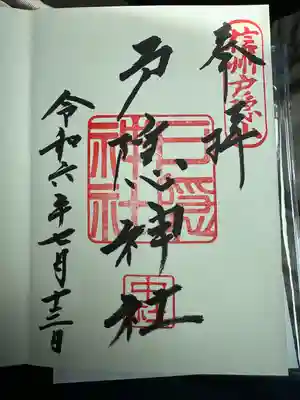 信州戸隠山
奉拝
戸隠神社
戸隠神社
中社
令和六年七月十三日